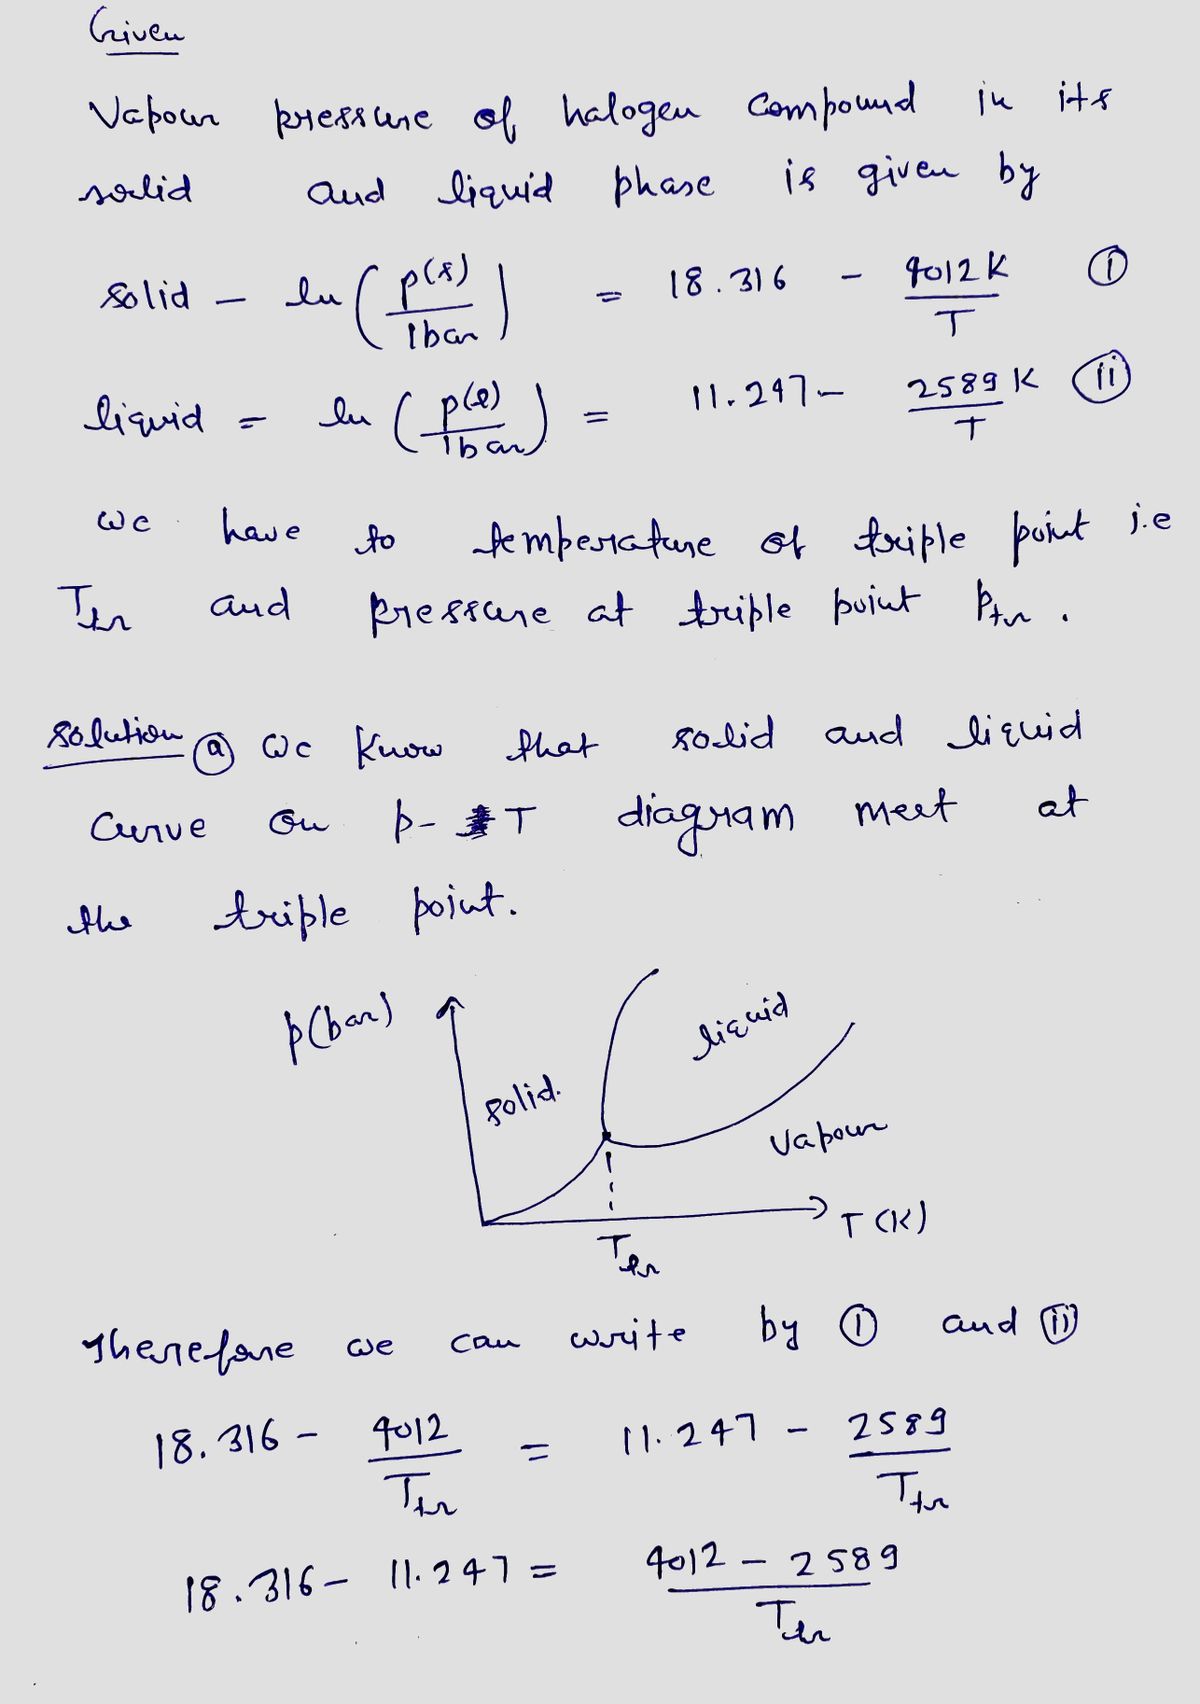 Given
Vapour pressure of halogen compound in its
solid and liquid phase is given by
solid - ln (p(s)/1bar) = 18.316 - 4012K/T (i)
liquid = ln (p(l)/1bar) = 11.247 - 2589 K/T (ii)
we have to temperature of triple point i.e
Ttr and pressure at triple point Ptr.
solution (a) we know that solid and liquid
curve on p- T diagram meet at
the triple point.
p(bar)
liquid
solid.
vapour
T (K)
Ttr
Therefore we can write by (i) and (ii)
18.316 - 4012/Ttr = 11.247 - 2589/Ttr
18.316 - 11.247 = 4012 - 2589/Ttr